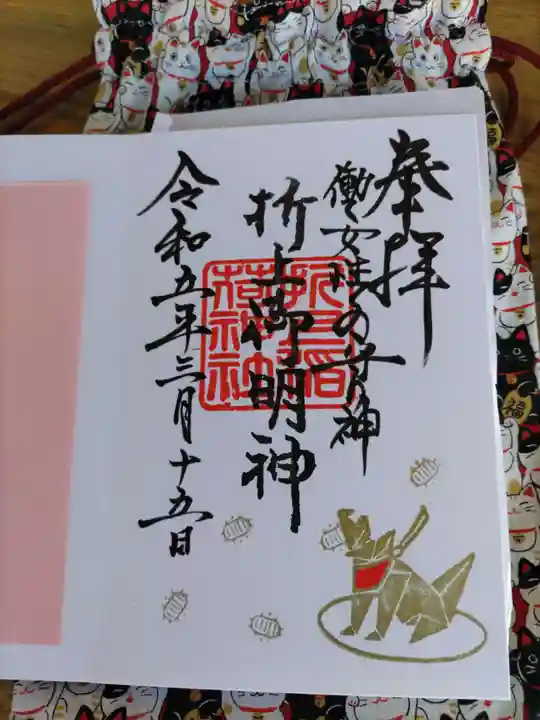 奉拝
働く女性の守神
折上御明神
折上稲荷神社
令和五年三月十五日
福